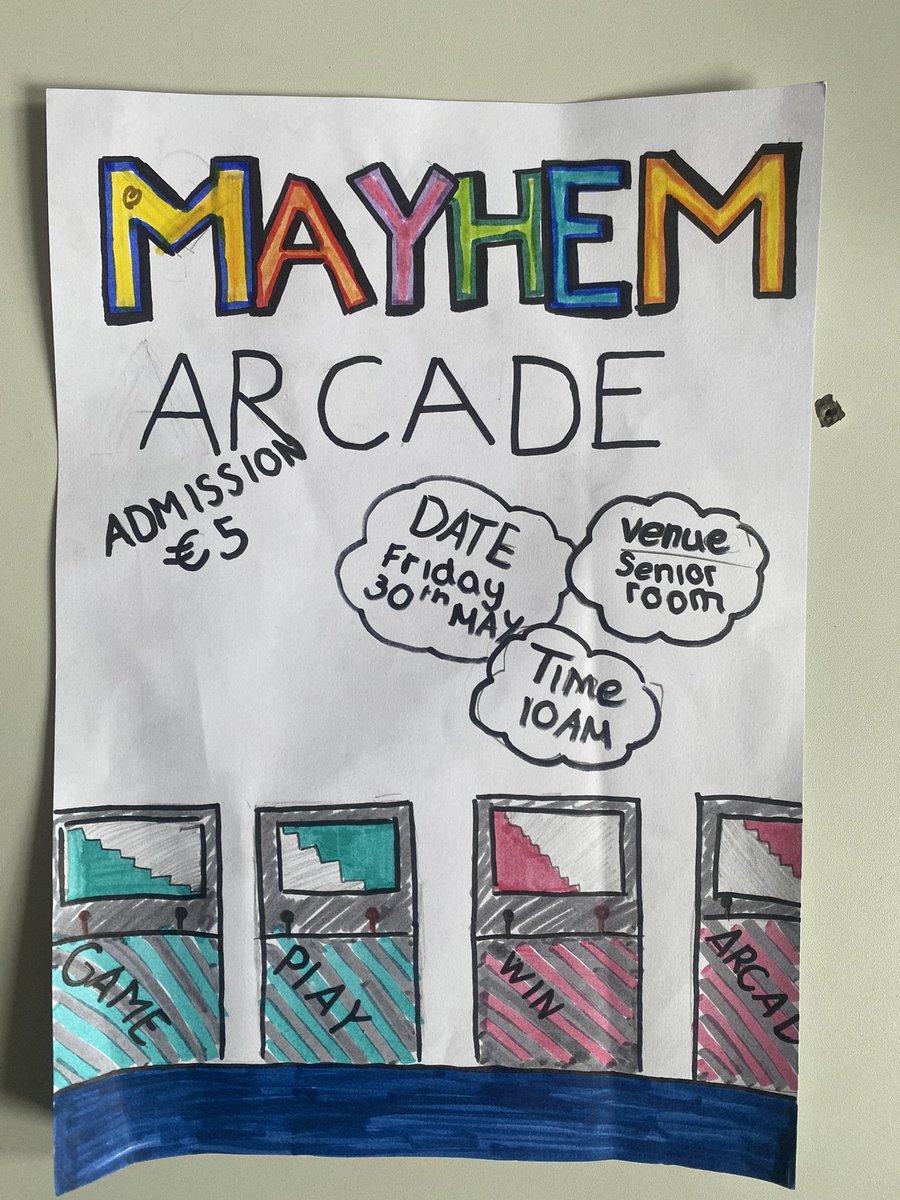 MAYHEM
ARCADE
ADMISSION
€5
DATE
Friday
30th MAY
Venue
Senior
room
Time
10AM
GAME
PLAY
WIN
ARCAD